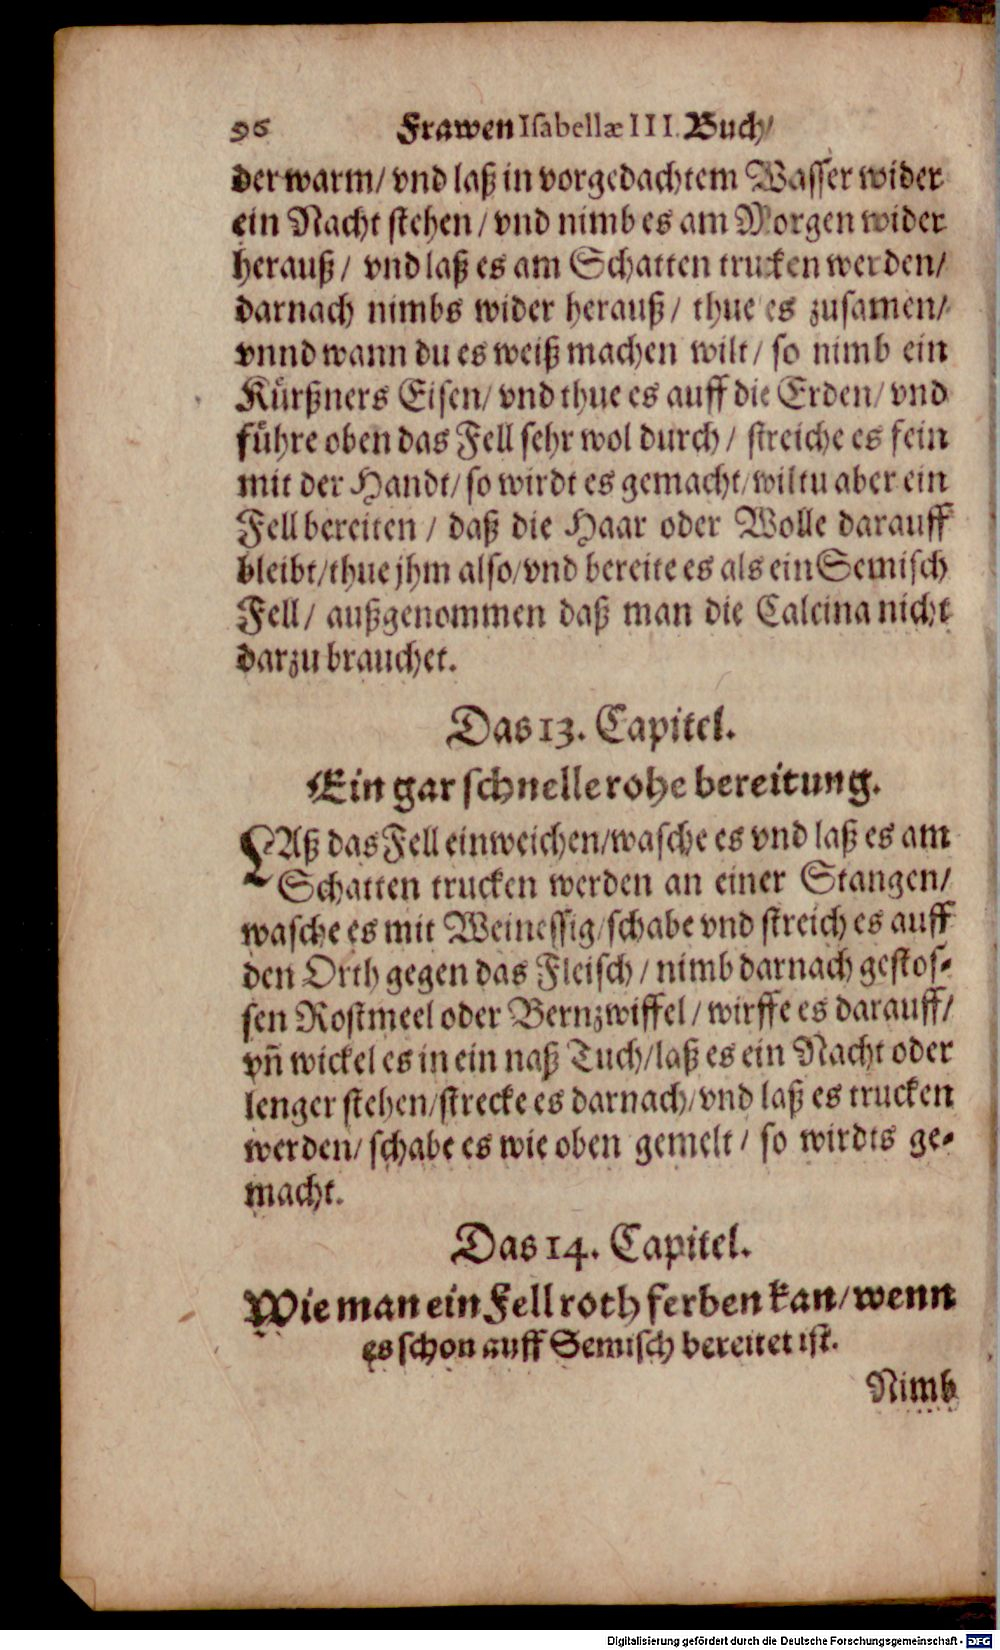 96 Frawen Isabellæ III. Buch/
der warm/ vnd laß in vorgedachtem Wasser wider
ein Nacht stehen / vnd nimb es am Morgen wider
herauß / vnd laß es am Schatten trucken werden/
darnach nimbs wider herauß / thue es zusamen/
vnnd wann du es weiß machen wilt / so nimb ein
Kürßners Eisen/ vnd thue es auff die Erden/ vnd
führe oben das Fell sehr wol durch / streiche es fein
mit der Handt/ so wirdt es gemacht/ wiltu aber ein
Fell bereiten / daß die Haar oder Wolle darauff
bleibt/ thue jhm also/ vnd bereite es als ein Semisch
Fell/ außgenommen daß man die Calcina nicht
darzu brauchet.
Das 13. Capitel.
Ein gar schnelle rohe bereitung.
LAß das Fell einweichen/ wasche es vnd laß es am
Schatten trucken werden an einer Stangen/
wasche es mit Weinessig/ schabe vnd streich es auff
den Orth gegen das Fleisch / nimb darnach gestos-
sen Rostmeel oder Bernzwiffel / wirffe es darauff/
vn̄ wickel es in ein naß Tuch/ laß es ein Nacht oder
lenger stehen/ strecke es darnach/ vnd laß es trucken
werden/ schabe es wie oben gemelt / so wirdts ge-
macht.
Das 14. Capitel.
Wie man ein Fell roth ferben kan/ wenn
es schon auff Semisch bereitet ist.
Nimb
Digitalisierung gefördert durch die Deutsche Forschungsgemeinschaft - DFG